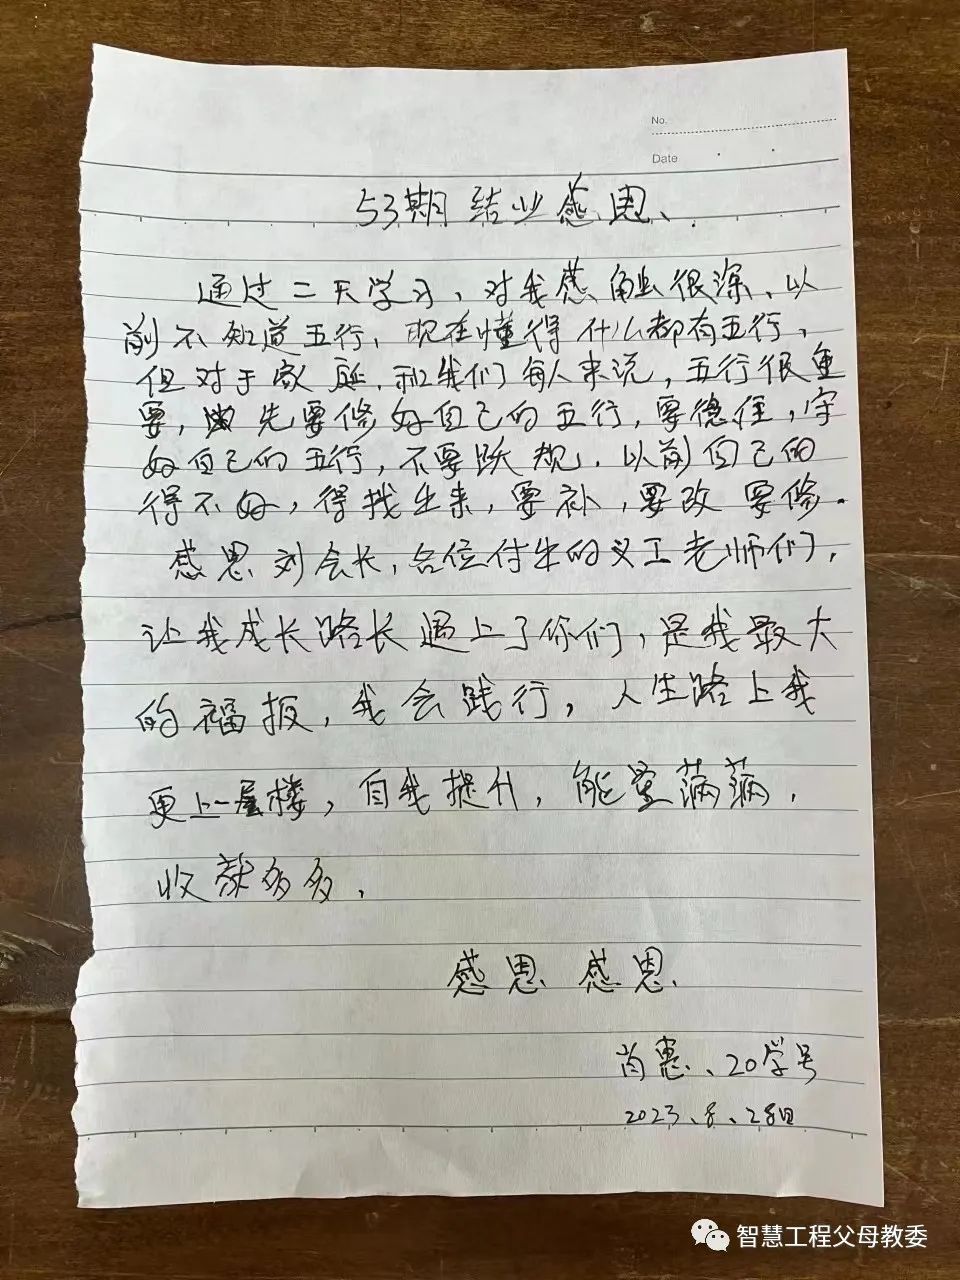 No.
Date
53期结业感恩、
通过二天学习、对我感触很深、以
前不知道五行、现在懂得什么都有五行,
但对于家庭.和我们每人来说,五行很重
要,先要修好自己的五行,要德住,守
好自己的五行,不要跃规.以前自己的
得不好,得找出来,要补,要改要修.
感恩刘会长,各位付出的义工老师们,
让我成长路长遇上了你们,是我最大
的福报,我会践行,人生路上我
更上一层楼,自我提升,能量满满.
收获多多.
感恩感恩.
肖惠、20学号
2023.8.28日
智慧工程父母教委